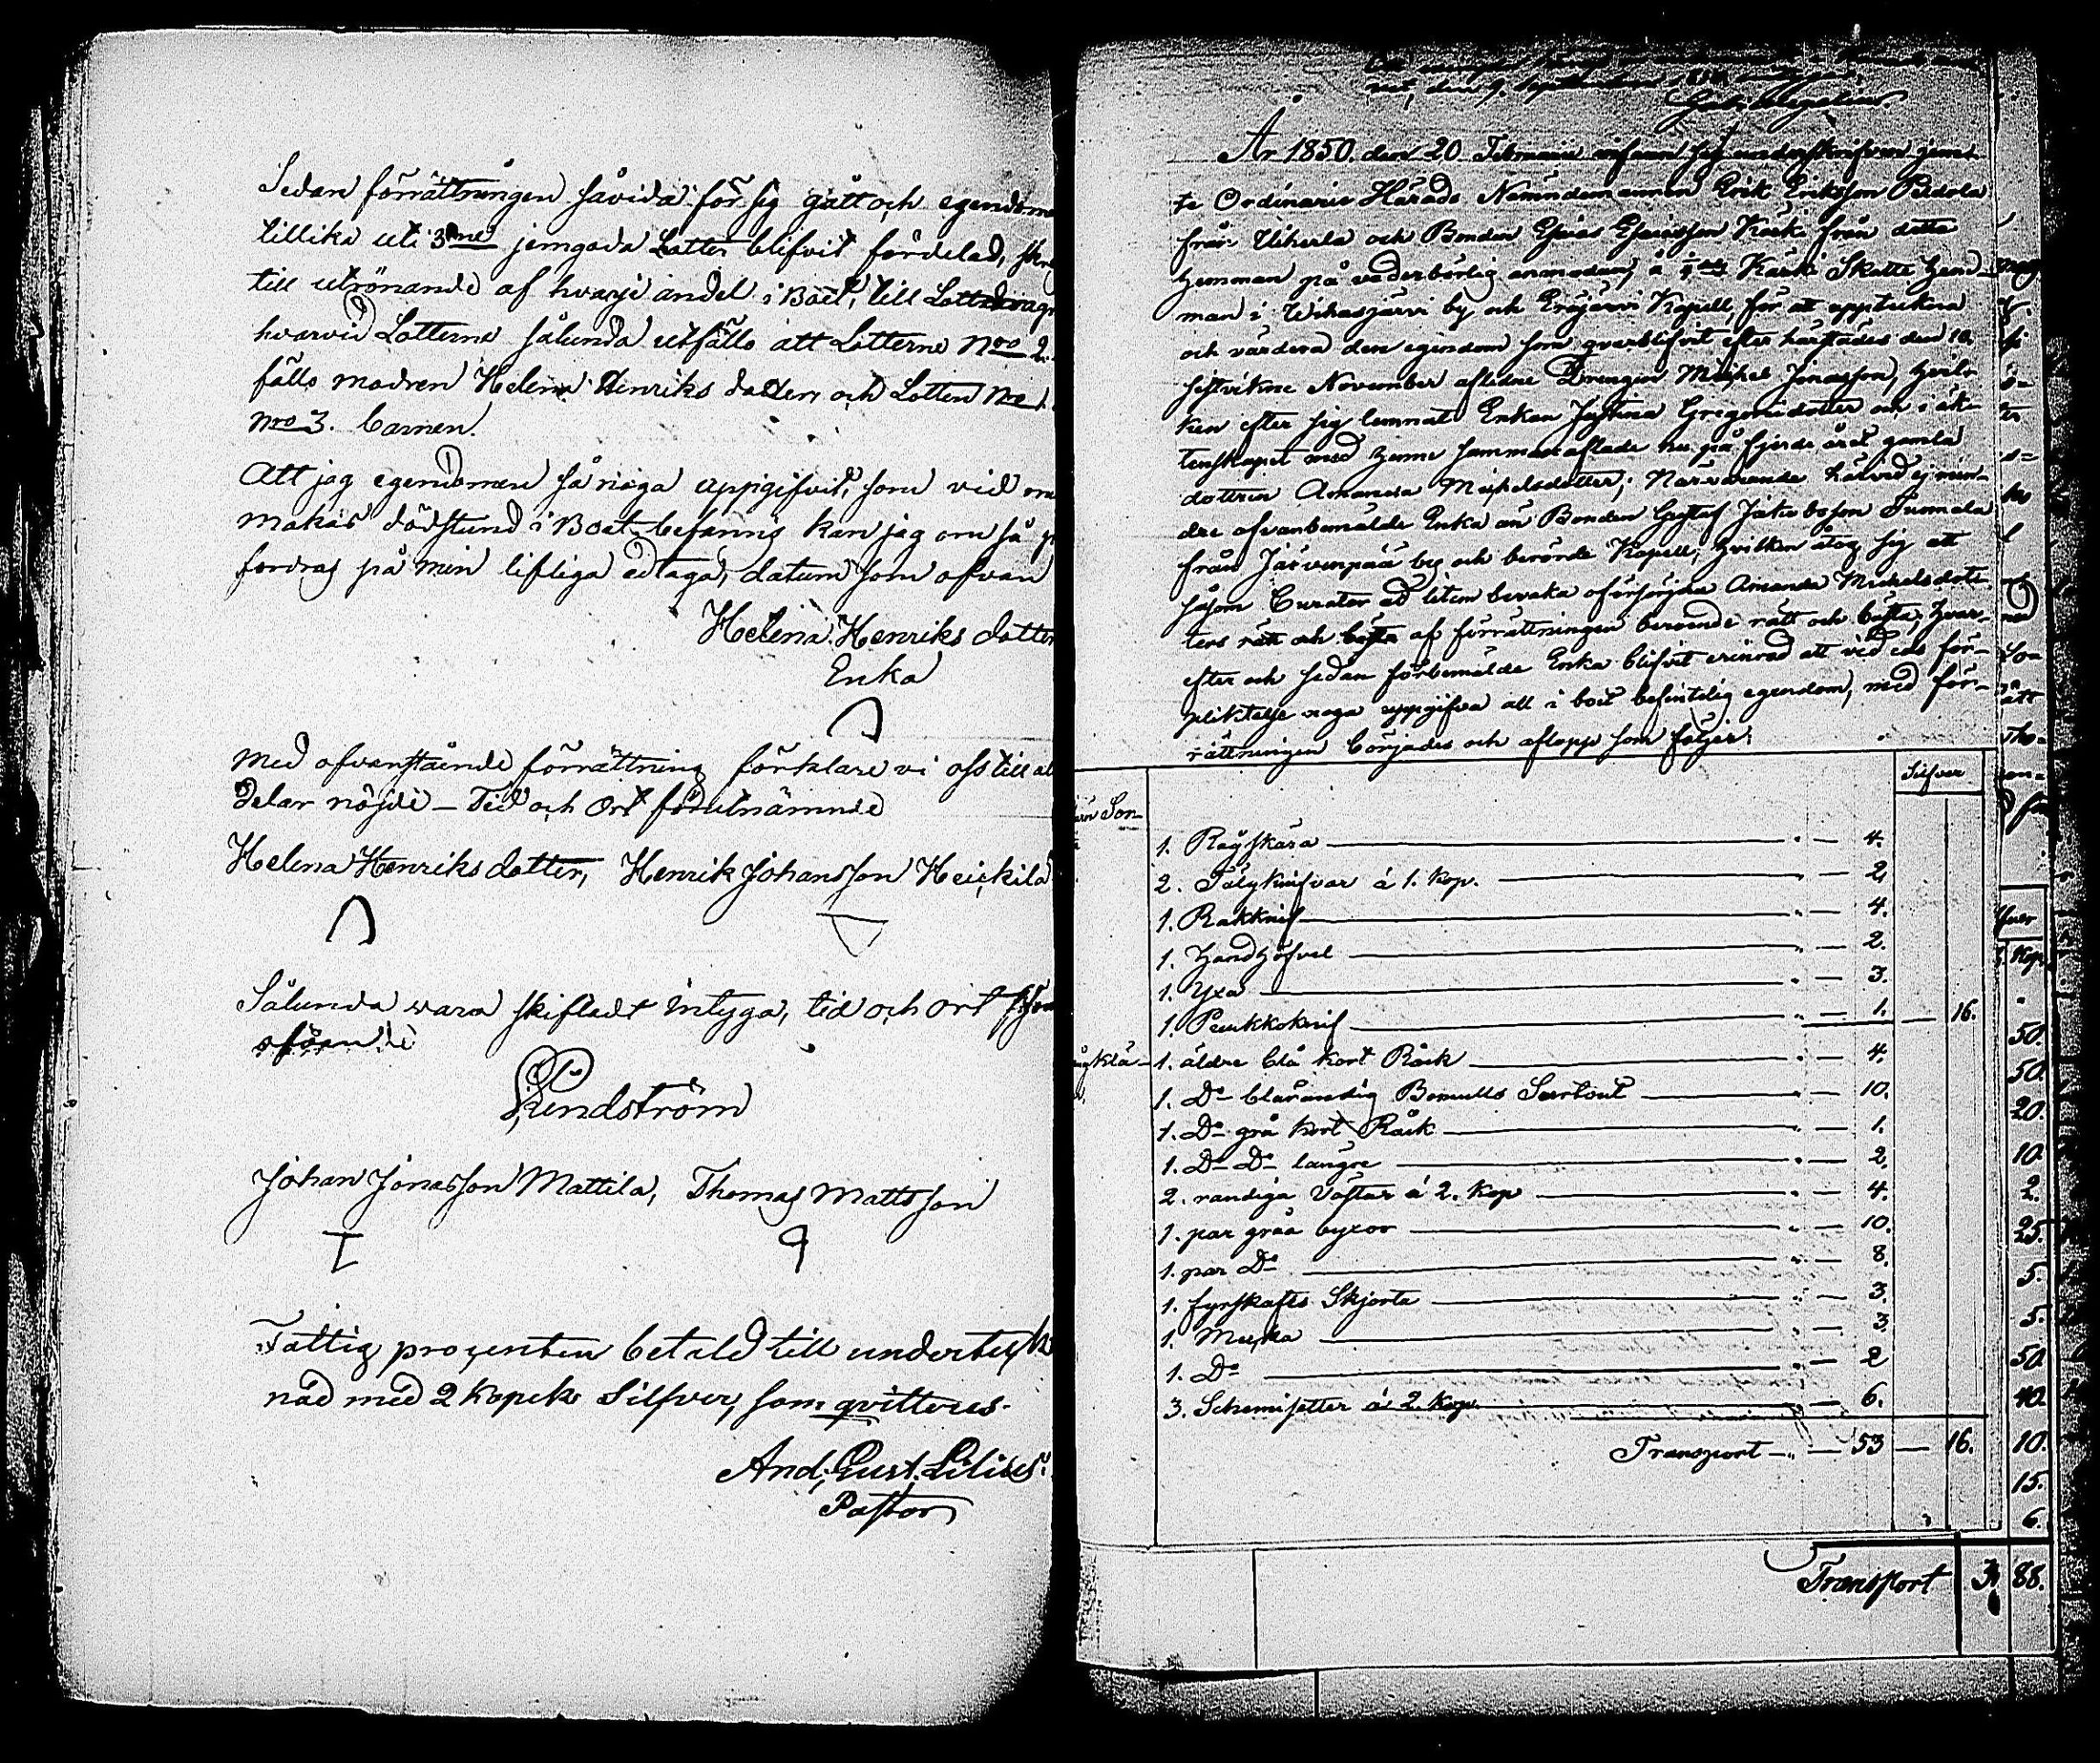 Sedan förrättningen såvida för sig gått och egendomen
tillika uti 3ne jemgoda Lotter blifvit fördelad,
till utrönande af hvarje andel i Boet, till
hvarvid Lotterne sålunda utföllo att Lotterne Nro 2.
föllo modren Helena Henriks dotter och Lotten Nro 1.
Nro 3. barnen.
Att jag egendomen så noga uppgifvit, som vid
makas dödstund i Boet befanns kan jag om så
fordras på min lifliga ed taga, datum som ofvan
Helena Henriks dotter
Enka
Med ofvanstående förrättning förklare vi oss till al
delar nöjde – Tid och Ort förutnämnde
Helena Henriksdotter, Henrik Johansson Heickilä
Sålunda vara skifladt intyga, tid och ort
Lundström
Johan Jonasson Mattila, Thomas Mattsson
Fattig procenten betald till underteck
nad med 2 Kopek Silfver, som qvitteras.
And. Gust. Lilius.
Pastor
den 9. September
År 1850. den 20 Februarii infann sig undertskrifven jem
te Ordinarie Härads Nämndemannen Erik Eriksson Pidola
från Uiherla och Bonden Esaias Esaiasson Kärki från detta
hemman på vederbörlig anmodan, å Kärki Skatte hem
man i Wihasjärvi by och Eräjärvi Kapell, för att uppteckna
och värdera den egendom som qvarblifvit efter härstädes den 10.
sistvikne November aflidne Drengen Mickel Jonasson, hvil-
ken efter sig lemnat Enkan Justina Gregorii dotter och i äk-
tenskapet med henne sammanaflade nu på fjerde året gamla
dottren Amanda Mickelsdotter; Närvarande härvid ej min-
dre ofvanbemälde Enka än Bonden Gustaf Jakobsson Tuomala
från Järvenpää by och berörde Kapell, hvilken åtog sig att
såsom Curator ad litem bevaka oförsörjda Amanda Mickelsdot-
ters rätt och bästa af förrättningen beroende rätt och bästa; hvar-
efter och sedan förbemälde Enka blifvit erinrad att vid eds för-
pliktelse noga uppgifva all i boet befintelig egendom, med för-
rättningen börjades och aflopp som följer:
Silfver
1. Rågskära — " — 4.
2. Täljknifvar á 1. Kop. — " — 2.
1. Rakknif — " — 4.
1. Handhöfvel — " — 2.
1. Yxa — " — 3.
1. Puukkoknif — " — 1. — 16.
1. äldre blå kort Råck — " — 4.
1. Do blårandig Bomulls Surtout — " — 10.
1. Do grå kort Råck — " — 1.
1. Do Do längre — " — 2.
2. randiga Västar á 2. Kop — " — 4.
1. par gråa byxor — " — 10.
1. par Do — " — 8.
1. fyrskafts Skjorta — " — 3.
1. Mucka — " — 3.
1. Do — " — 2
3. Schemisetter á 2. Kop. — " — 6.
Transport — " — 53 — 16.
Kop.
50.
50.
20.
10.
2.
25.
5.
5.
50.
40.
10.
15.
6.
Transport 3 88.